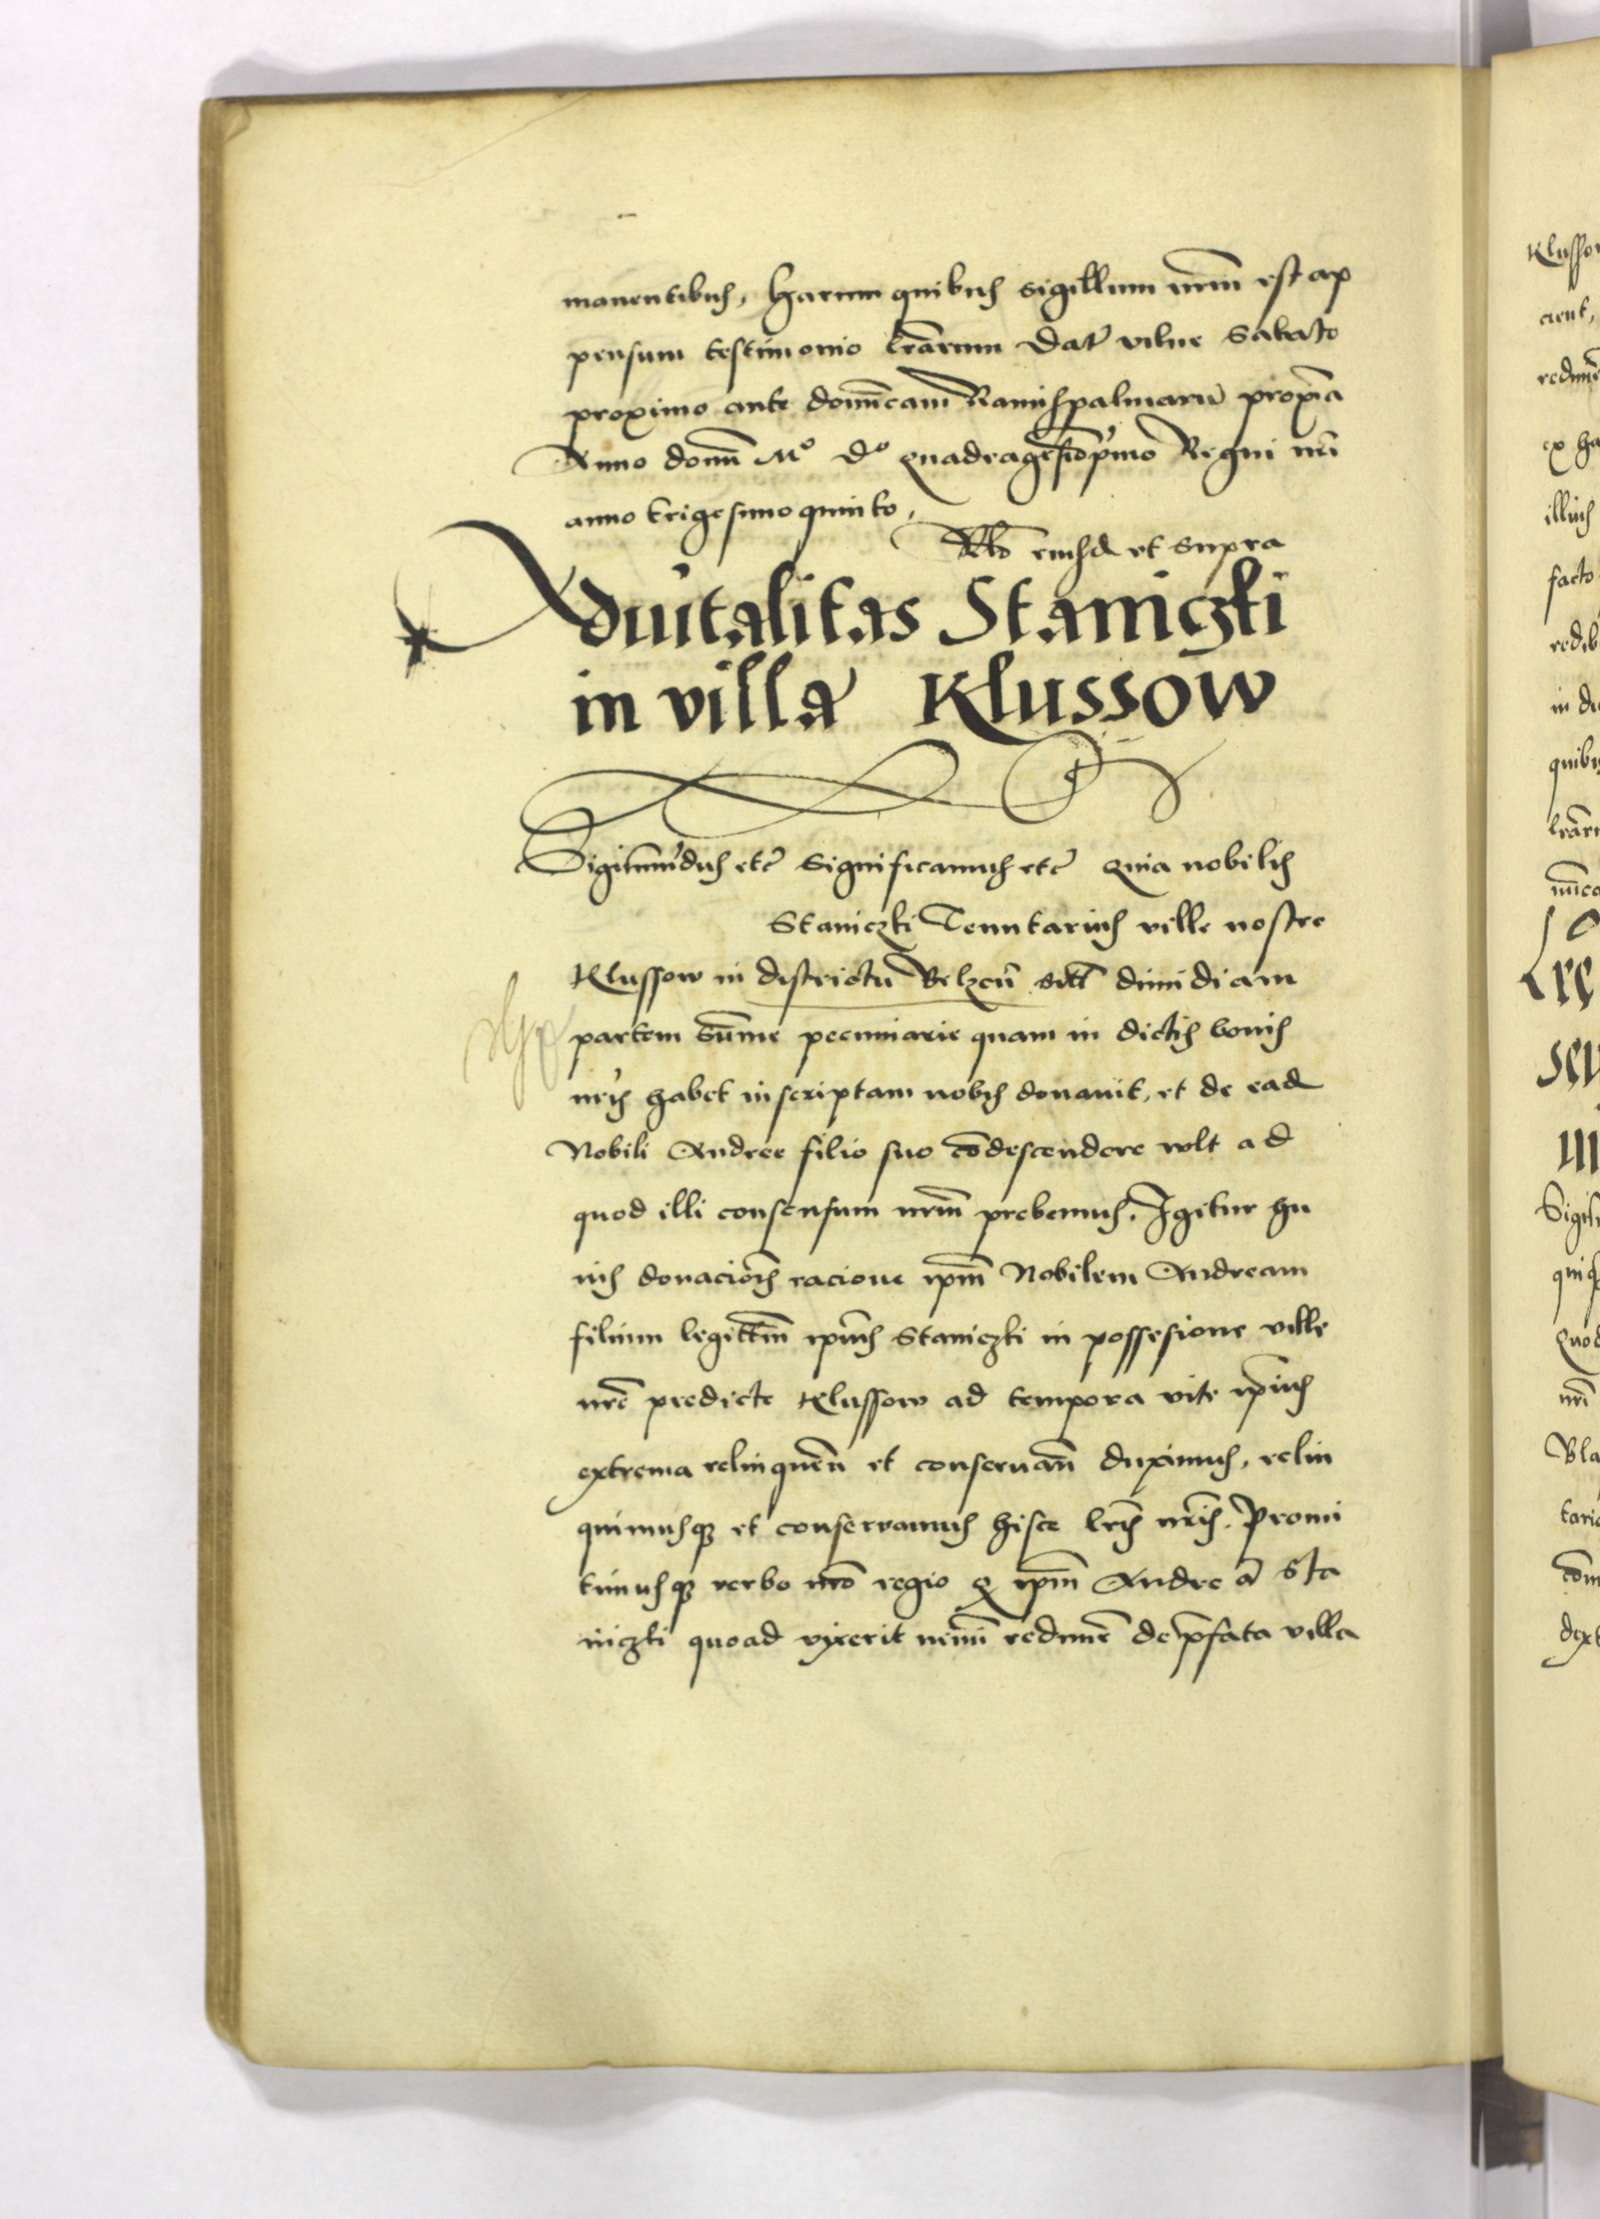 manentibus, Harum quibus sigillum nr̄m est ap
pensum testimonio l̄rarum Dat̄ vilne Sabato
proximo ante domīcam Ramispalmarū proxīa
Anno domī Mº Dº quadragesīop̄mo Regni nr̄i
anno trigesimo quinto,
Rl̄o eiusd̄ ut supra
Aduitalitas Staniczki
in villa Klussow
Sigismūdus etc̄ Significamus etc̄ Quia nobilis
Staniczki Tenutarius ville nostre
Klussow in districtu Belzeñ dimidiam
partem sūme pecuniarie quam in dictis bonis
nr̄is habet inscriptam nobis donauit, et de ead̄
Nobili Andree filio suo cōdescendere wlt ad
quod illi consensum nr̄m prebemus, Igitur hu
ius donaciōis racione ip̄m Nobilem Andream
filium legittīm ip̄ius Staniczki in possesione ville
nr̄e predicte Klussow ad tempora vite ip̄ius
extrema relinqueñ et conseruañ duximus, relin
quimusq̨ et conseruamus hisce l̄ris nr̄is. Promi
timusq̨ verbo nr̄o regio q̨ ip̄m Andreā Sta
niczki quoad vixerit nemī redimēr de p̄fata villa